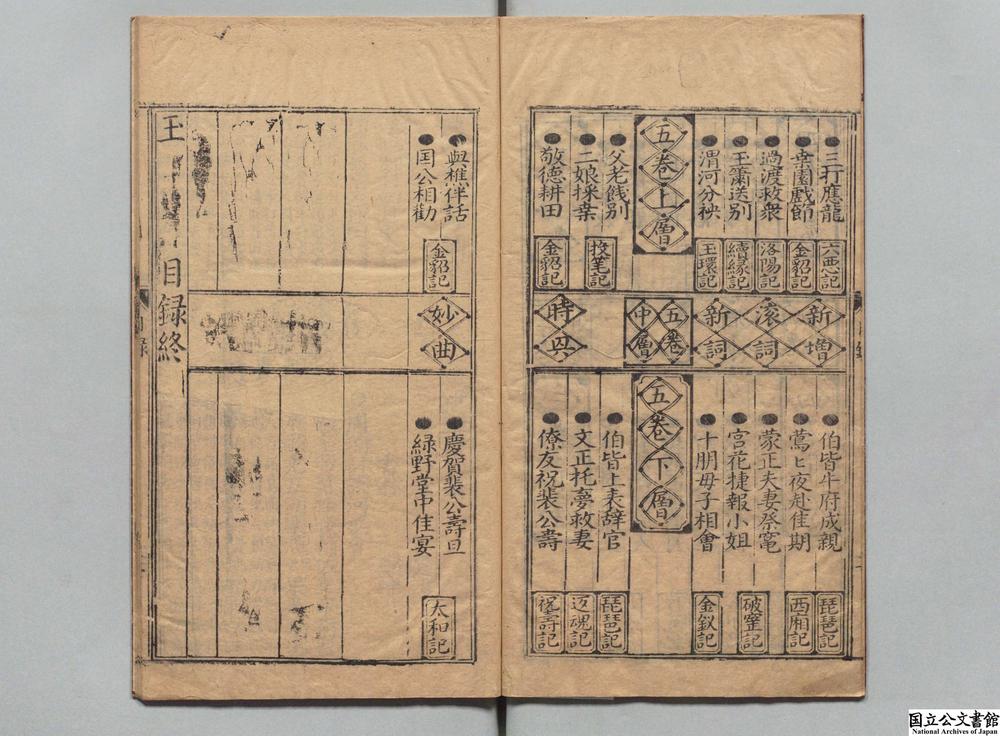 三打應龍
六惡記
棄園戲節
金貂記
過渡救衆
洛陽記
玉簫送別
續緣記
渭河分袂
玉環記
五卷上層
父老餞別
二娘採桑
投筆記
敬德耕田
金貂記
新增
滾詞
新詞
五卷中層
時興
伯皆牛府成親
琵琶記
鶯ヒ夜赴佳期
西廂記
蒙正夫妻祭竃
破窑記
宮花捷報小姐
十朋母子相會
金釵記
五卷下層
伯皆上表辞官
琵琶記
文正托夢救妻
还魂記
僚友祝裴公壽
壽記
與樵伴話
国公相勸
金貂記
妙曲
慶賀裴公壽旦
緑野堂中佳宴
太和記
玉
目録終
国立公文書館
National Archives of Japan